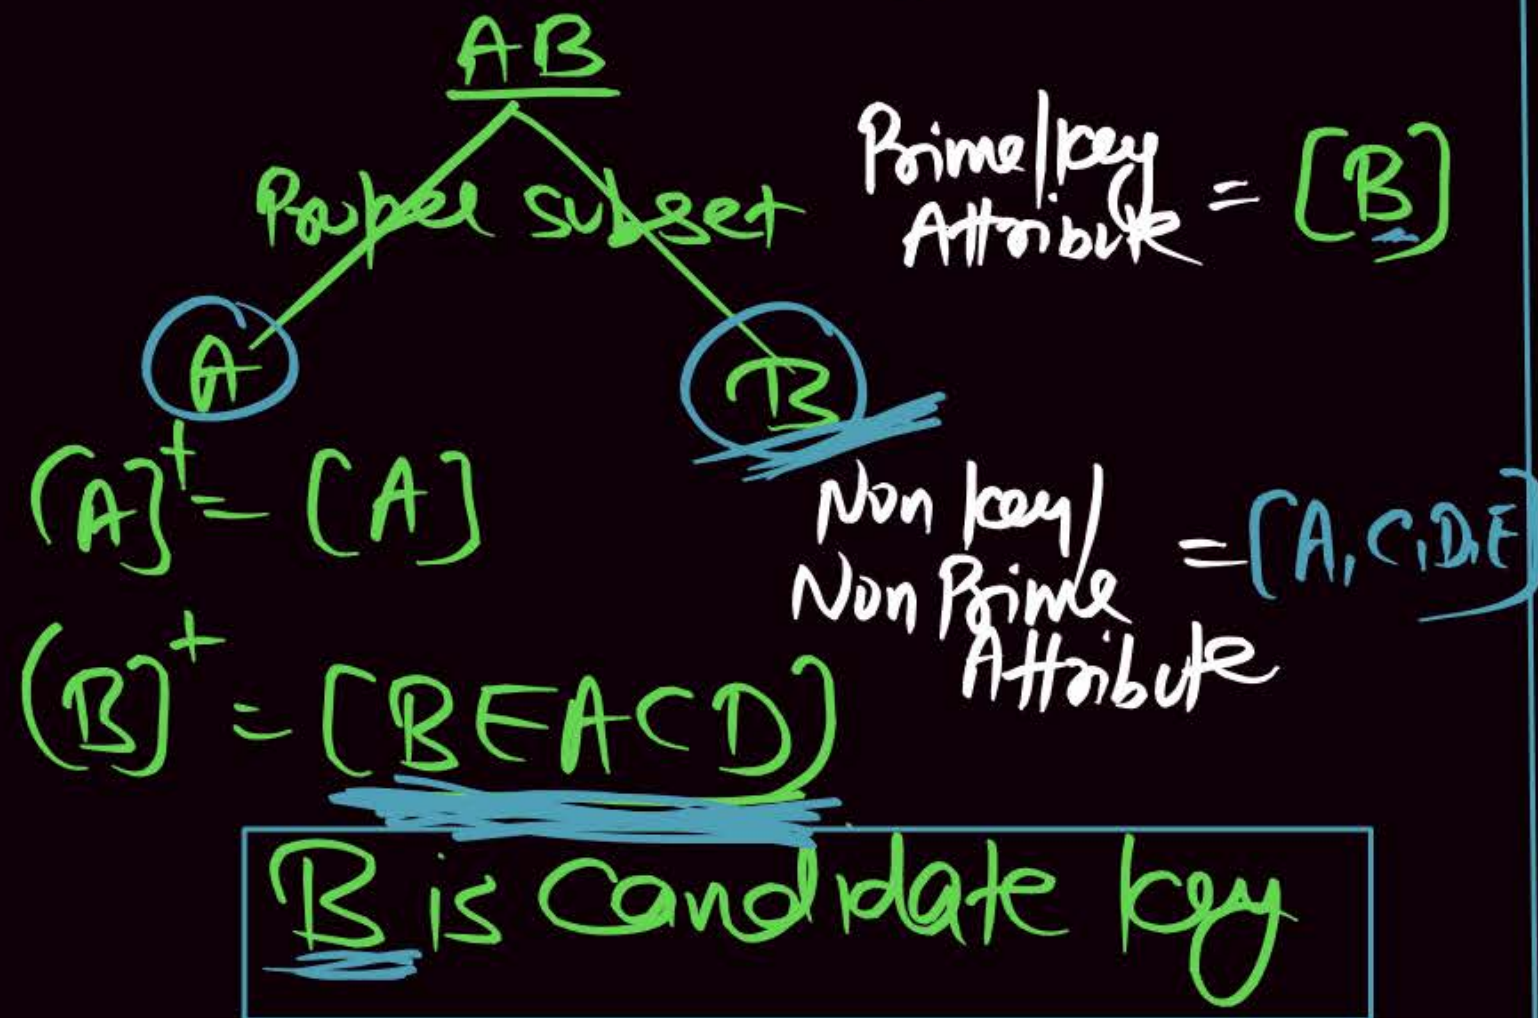 AB
Proper subset
A
B
Prime/key
Attribute = [B]
(A)⁺ = [A]
(B)⁺ = [BEACD]
Non key/
Non Prime
Attribute = [A, C, D, E]
B is Candidate key